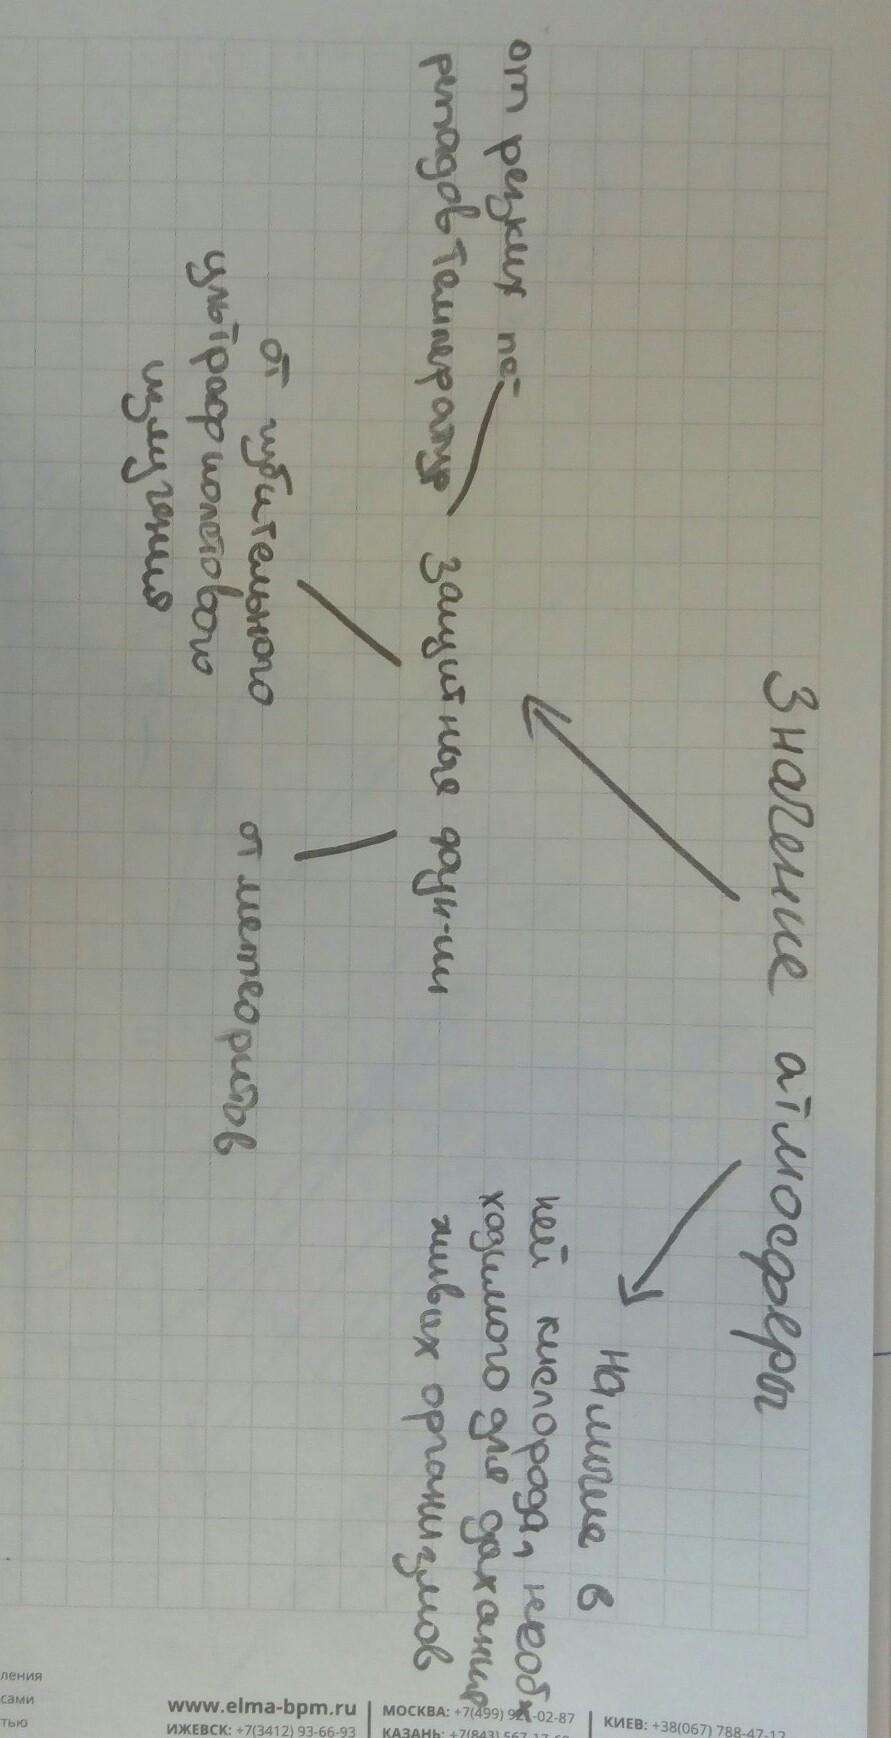 Значение атмосферы
от резких пе-
репадов температур
защитные функ-ии
от губительного
ультрафиолетового
излучения
от метеоритов
наличие в
ней кислорода, необ
ходимого для дыхания
живых организмов
ления
сами
тью
www.elma-bpm.ru
ИЖЕВСК: +7(3412) 93-66-93
МОСКВА: +7(499) 92 -02-87
КАЗАНЬ: +7(843) 567-17-
КИЕВ: +38(067) 788-47-12